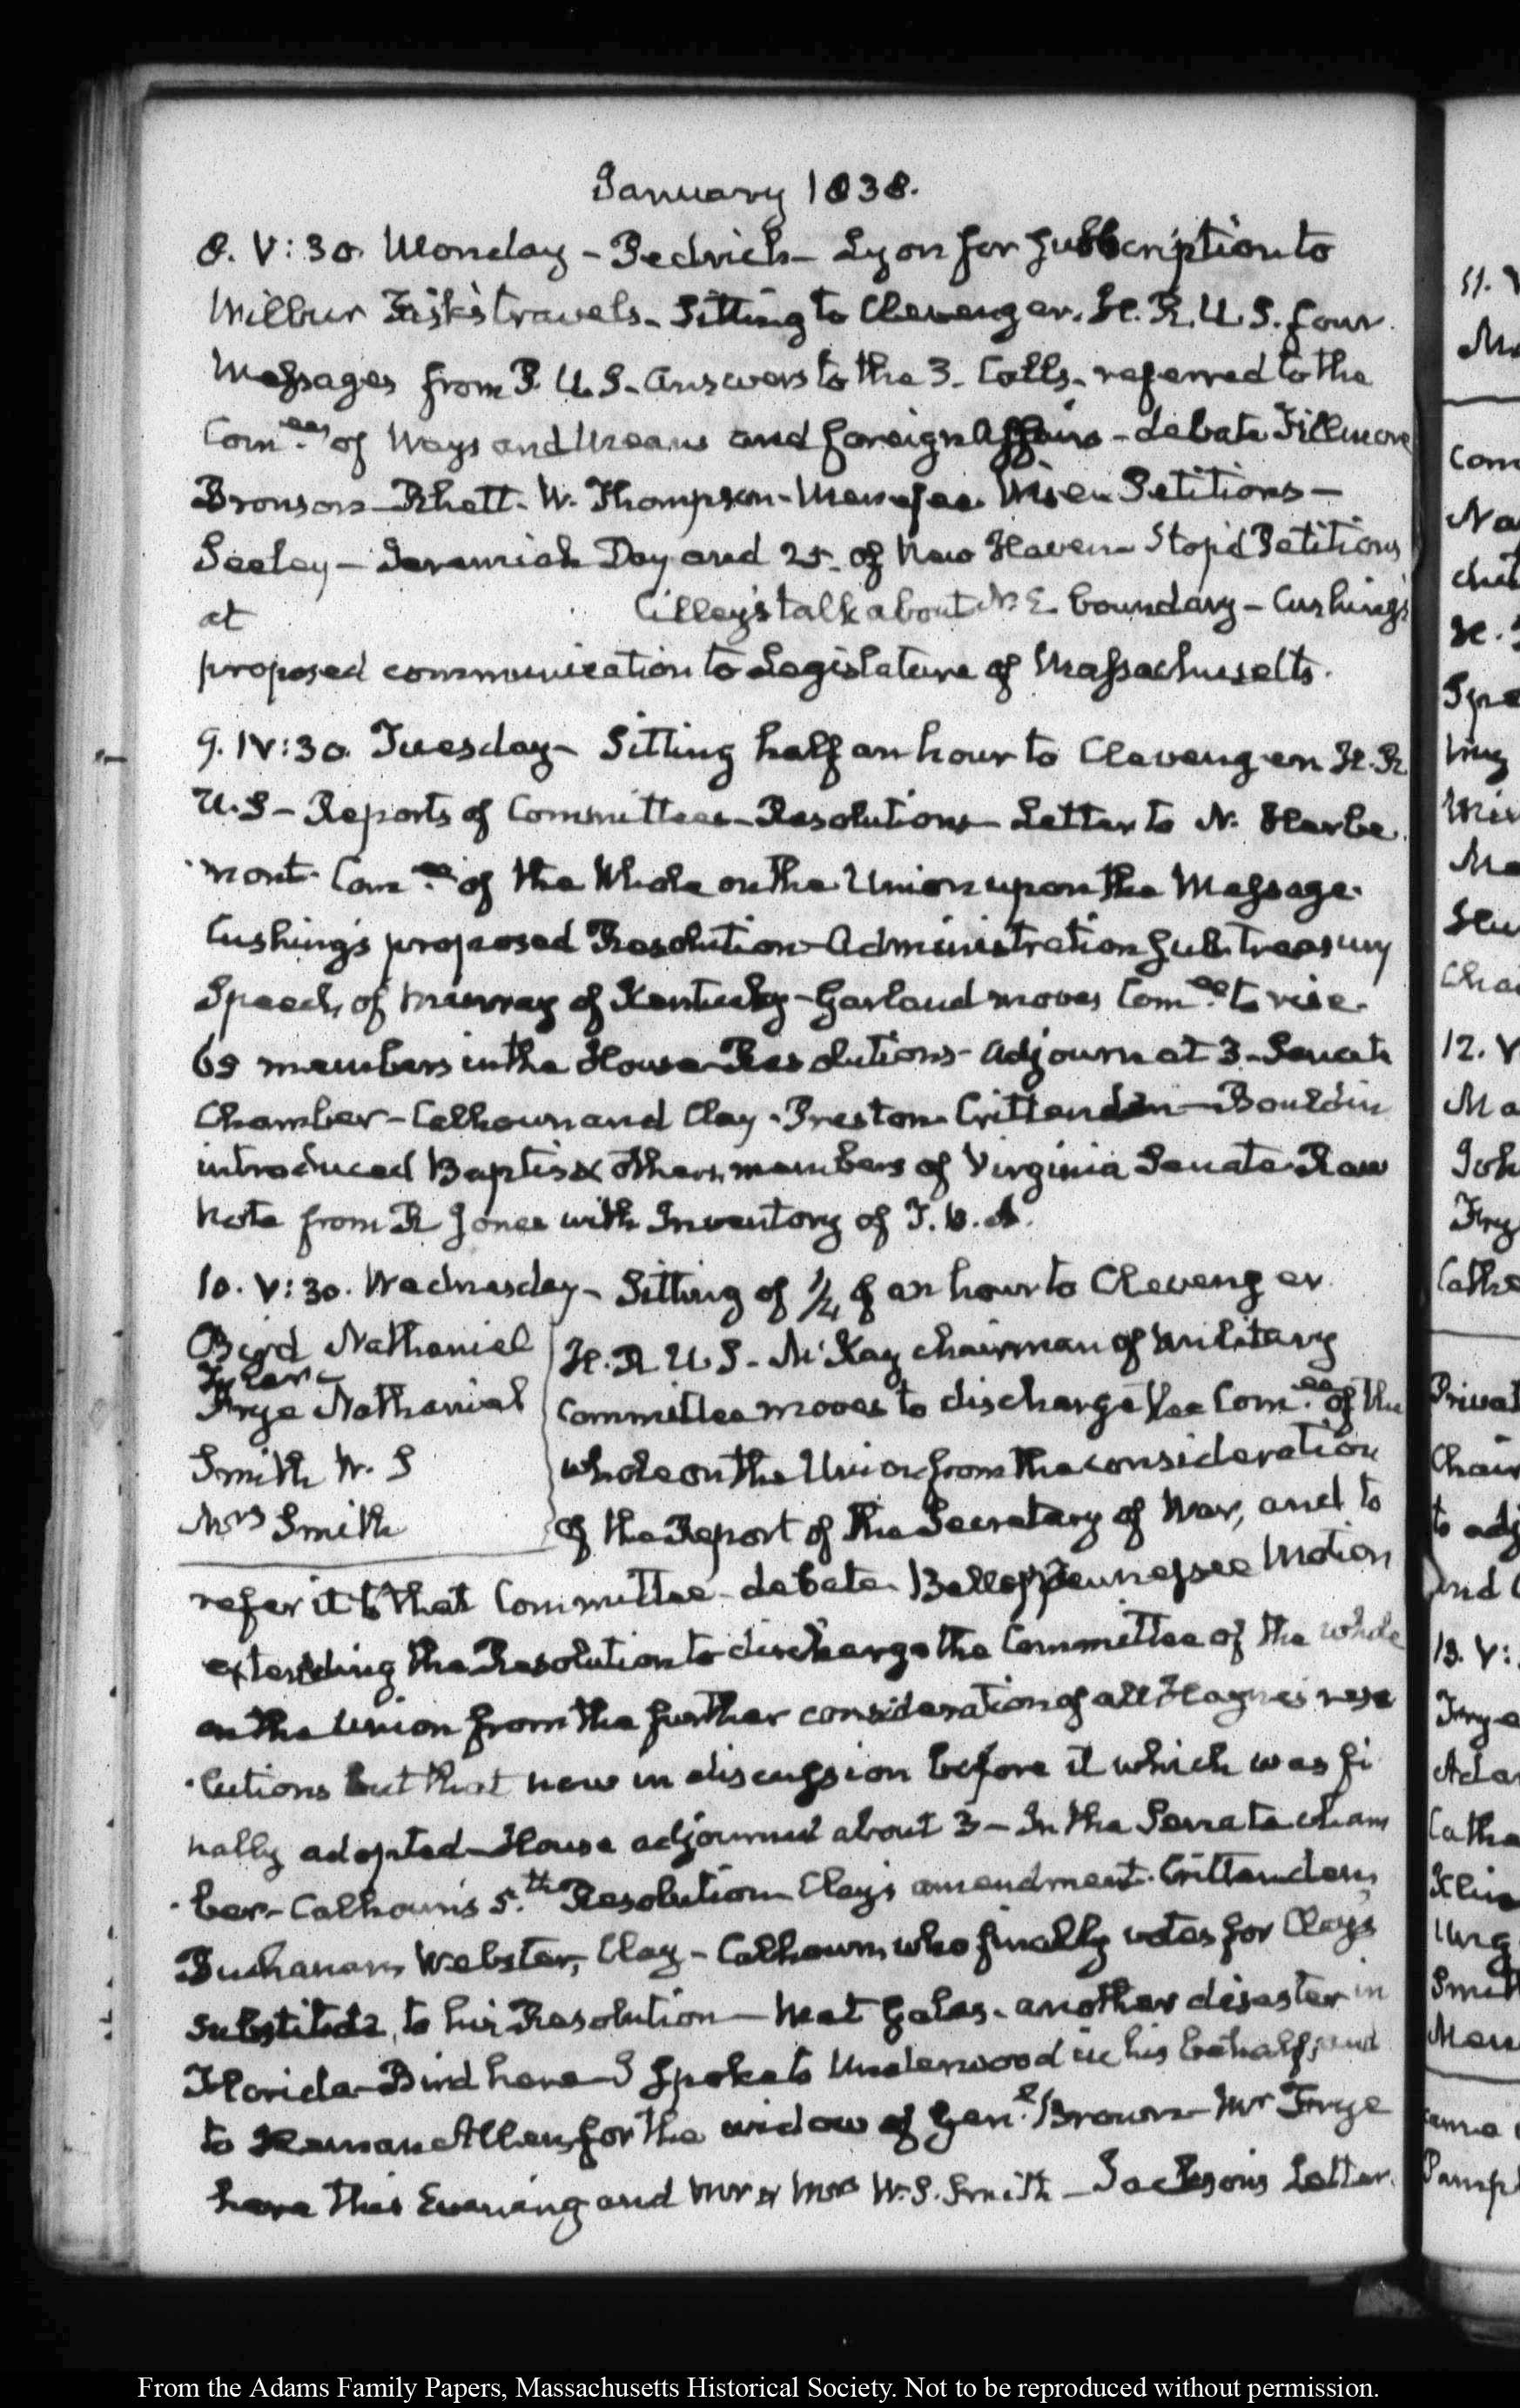 January 1838.
8. V:30. Monday – Pedrick – Lyon for subscription to
Wilbur Fisk's travels – Sitting to Clevenger. H. R. U. S. four
Messages from P. U. S. Answers to the 3. Calls – referred to the
Com.ees of Ways and Means and foreign Affairs – debate Fillmore
Bronson – Rhett – W. Thompson – Menefee. Petitions –
Seeley – Jeremiah Day and 25. of New Haven – Stop'd Petitions
at Cilley's talk about N. E. boundary – Cushing's
proposed communication to Legislature of Massachusetts.
9. IV:30. Tuesday – Sitting half an hour to Clevenger H. R
U. S – Reports of Committees – Resolutions – Letter to N. Herbe
mont. Com.ee of the Whole on the Union upon the Message.
Cushing's proposed Resolution – Administration Sub. treasury
Speech of Murray of Kentucky – Garland moves Com.ee to rise.
69 members in the House – Resolutions – Adjourn at 3 – Senate
Chamber – Calhoun and Clay – Preston – Crittenden – Bouldin
introduced Baptist & others, members of Virginia Senate
Note from R Jones with Inventory of T. B. A.
10. V:30. Wednesday – Sitting of ¼ of an hour to Clevenger
Bird Nathaniel
Frye Nathaniel
Smith W. S
Mrs Smith
H. R U S – McKay chairman of Military
Committee moves to discharge the Com.ee of the
whole on the Union from the consideration
of the Report of the Secretary of War, and to
refer it to that Committee – debate. Bell of Tennessee Motion
extending the Resolution to discharge the Committee of the whole
on the Union from the further consideration of all Haynes's reso
lutions but that now in discussion before it which was fi
nally adopted – House adjourned about 3 – In the Senate cham
ber – Calhoun's 5.th Resolution Clay's amendment. Crittenden,
Buchanan, Webster, Clay – Calhoun, who finally votes for Clay's
substitute, to his Resolution – Met Gales – another disaster in
Florida – Bird here – I spoke to Underwood in his behalf, and
to Heman Allen, for the widow of Gen.l Brown – Mr Frye
here this Evening and Mr & Mrs W. S. Smith – Jackson's Letter.
11. V
12. V
13. V:
From the Adams Family Papers, Massachusetts Historical Society. Not to be reproduced without permission.